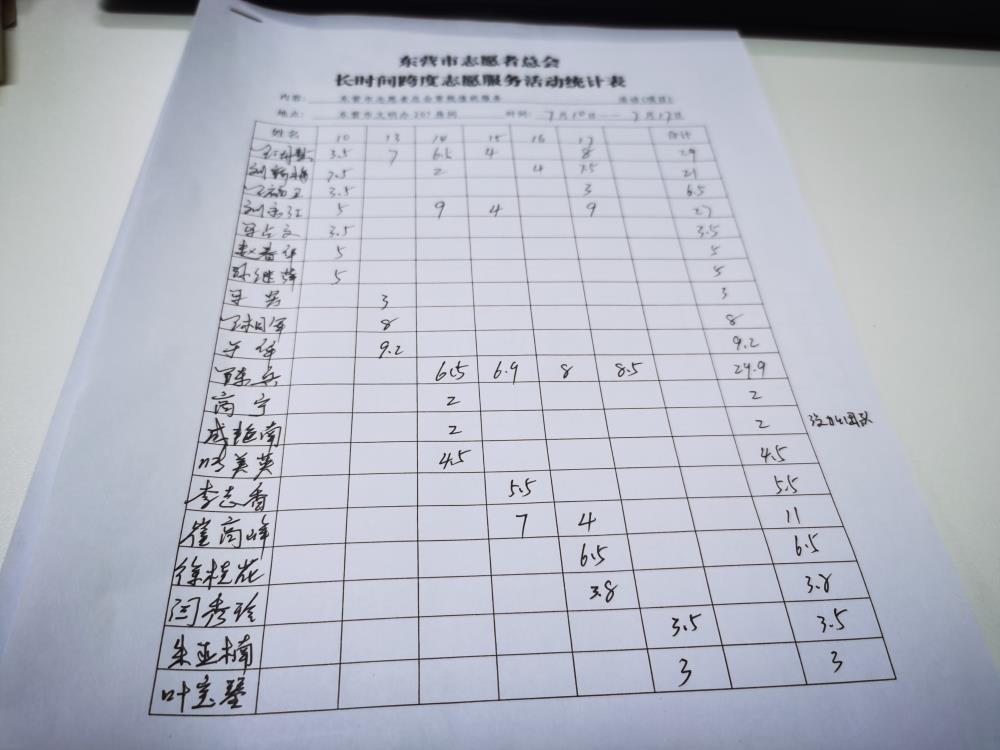 东营市志愿者总会
长时间跨度志愿服务活动统计表
内容: 东营市志愿者总会常规值班服务 活动(项目)
地点: 东营市文明办207房间 时间: 7月10日——7月17日
姓名 10 13 14 15 16 17 合计
3.5 7 6.5 4 8 29
7.5 2 4 7.5 21
3.5 3 6.5
5 9 4 9 27
3.5 3.5
赵春 5 5
孙继萍 5 5
3 3
8 8
9.2 9.2
6.5 6.9 8 8.5 29.9
高宁 2 2
成艳南 2 2
美英 4.5 4.5
李志香 5.5 5.5
崔高峰 7 4 11
徐桂花 6.5 6.5
闫秀珍 3.8 3.8
朱亚楠 3.5 3.5
叶宝琴 3 3